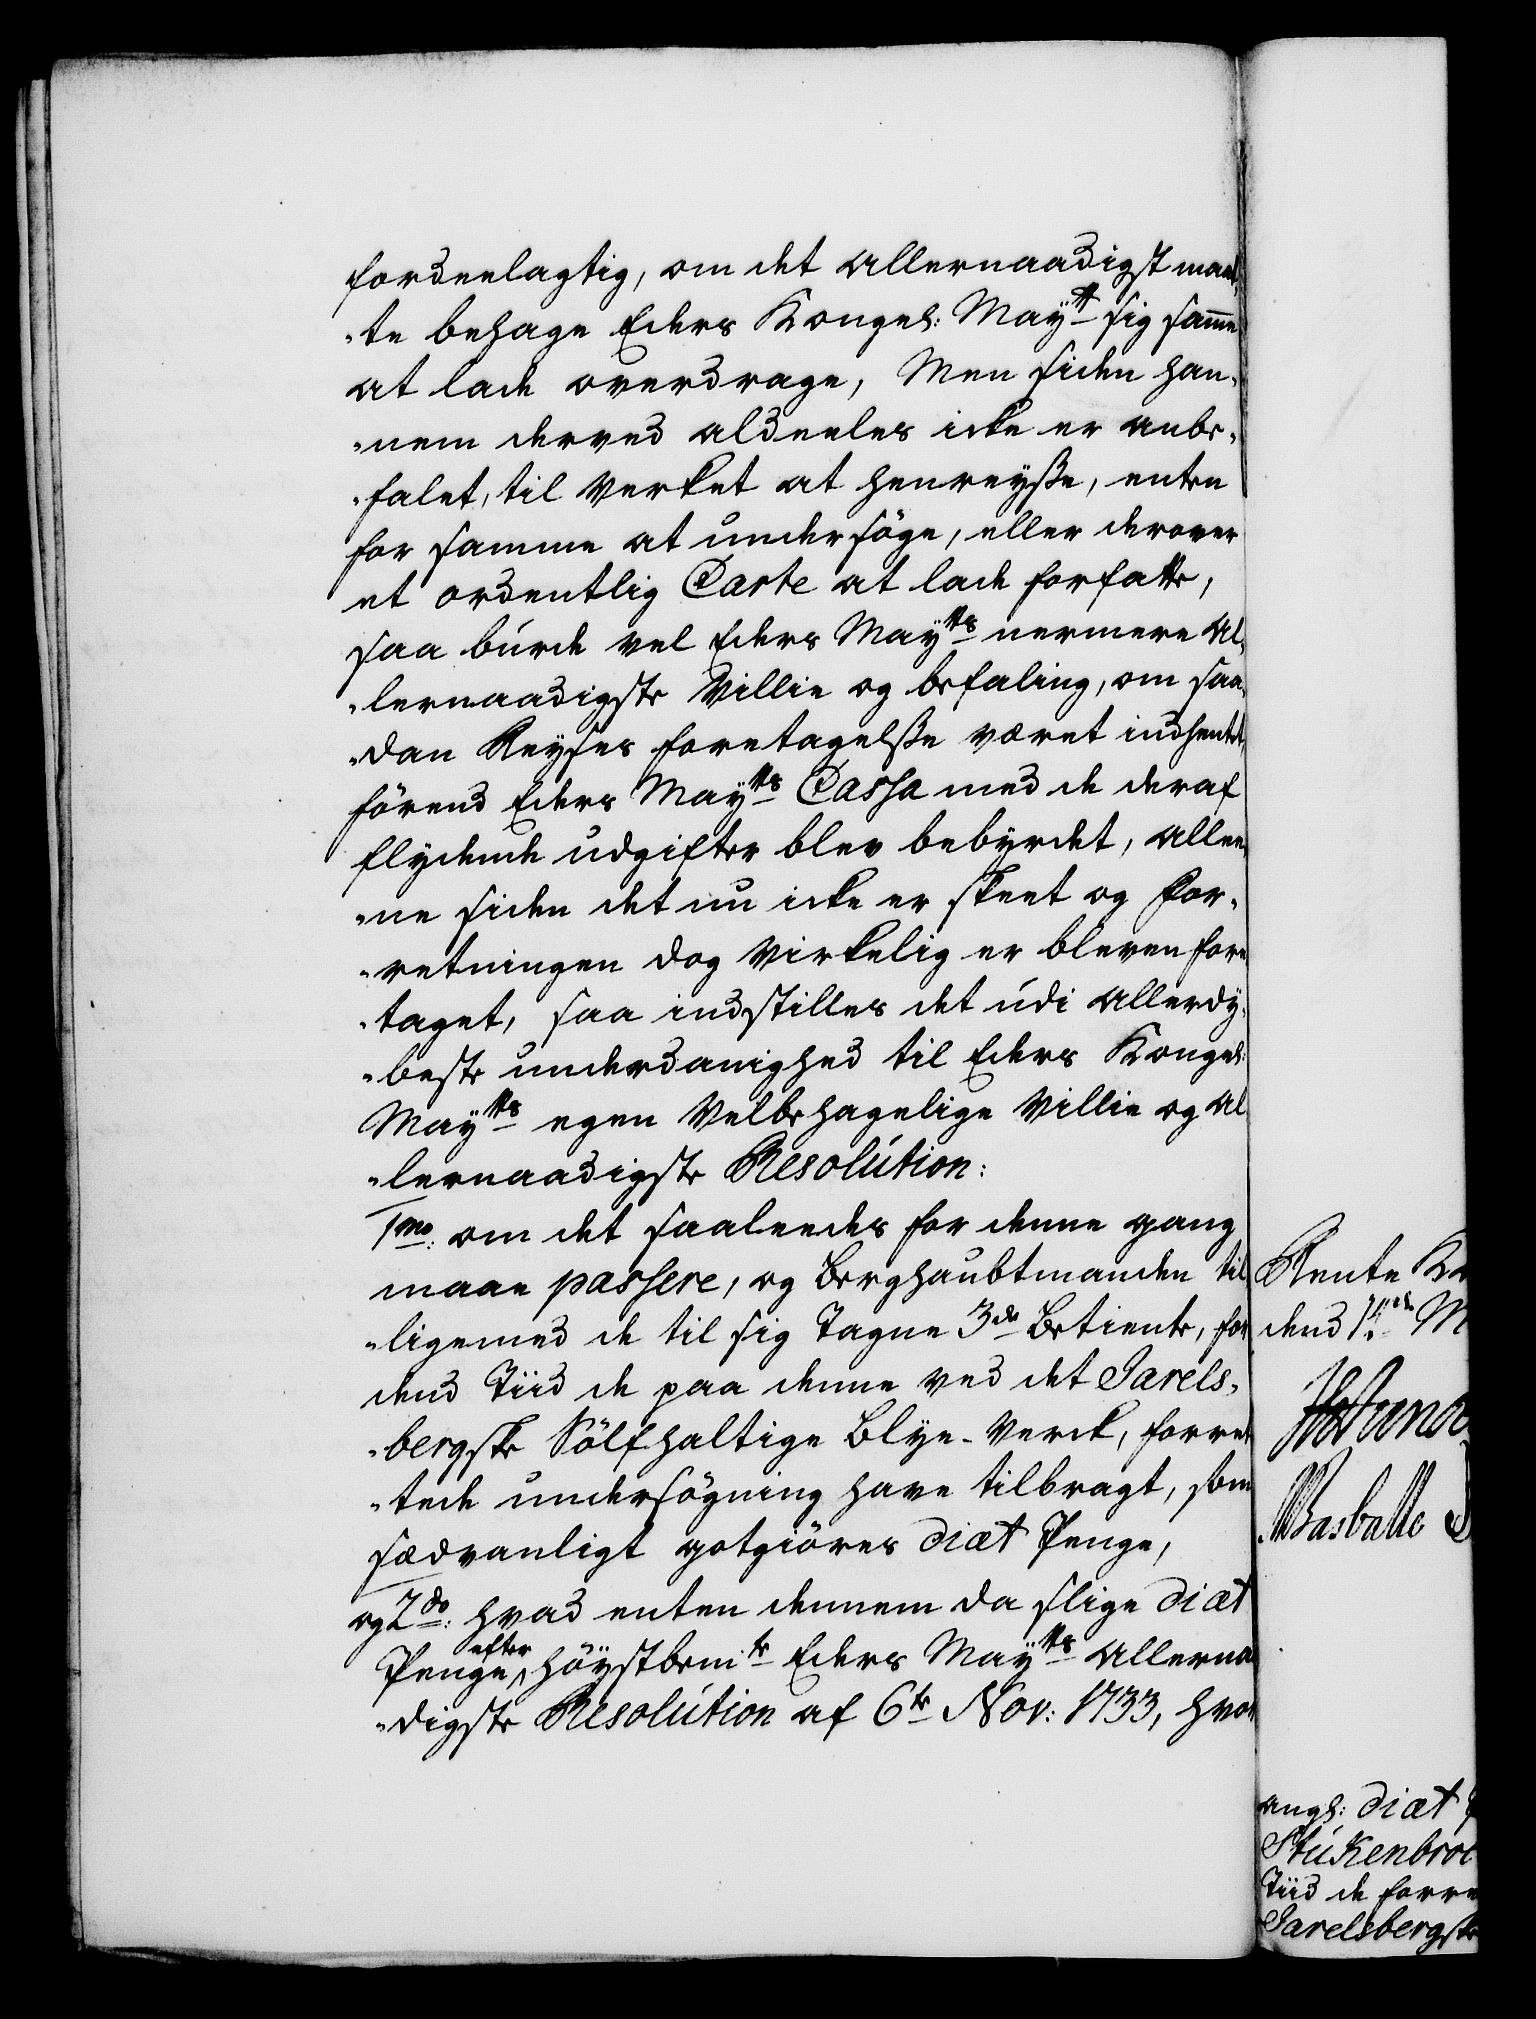 fordeelagtig, om det allernaadigst maat,
„te behage Eders Kongel: Mayᵗᵗ sig samme
at lade overdrage, Men siden han„
„nem derved aldeeles icke er anbe„
„falet, til Verket at henreyße, enten
for samme at undersöge, eller derover
et ordentlig Carte at lade forfatte,
saa burde vel Eders Mayᵗᵗˢ nermere al„
„lernaadigste Villie og befaling, om saa„
„dan Reyses foretagelße været indhentet,
förend Eders Mayᵗᵗˢ Cassa med de deraf
flydende udgifter blev bebyrdet, allee„
„ne siden det nu icke er skeet og For„
„retningen dog Virkelig er bleven fore„
„taget, saa indstilles det udi allerdy„
„beste underdanighed til Eders Kongel:
Mayᵗᵗˢ egen Velbehagelige Villie og al„
„lernaadigste Resolution:
1ᵐᵒ: om det saaleedes for denne gang
maae passere, og Berghaubtmanden til„
„ligemed de til sig Tagne 3ᵈᵉ Betiente, for
dend Tiid de paa denne ved det Jarels„
„bergske Sölfhaltige Blye-Verck, forret„
„tede undersögning have tilbragt, som
sædvanligt gotgiöres diæt Penge,
og 2ᵈᵒ: hvad enten dennem da slige diæt
Penge efter höystbemᵗᵉ Eders Mayᵗᵗˢ allernaa„
„digste Resolution af 6ᵗᵉ Nov: 1733, hvor
Rente
dend
Basballe
angl: diæt
Stukenbroc
Tiid de forre
Jarelsbergske